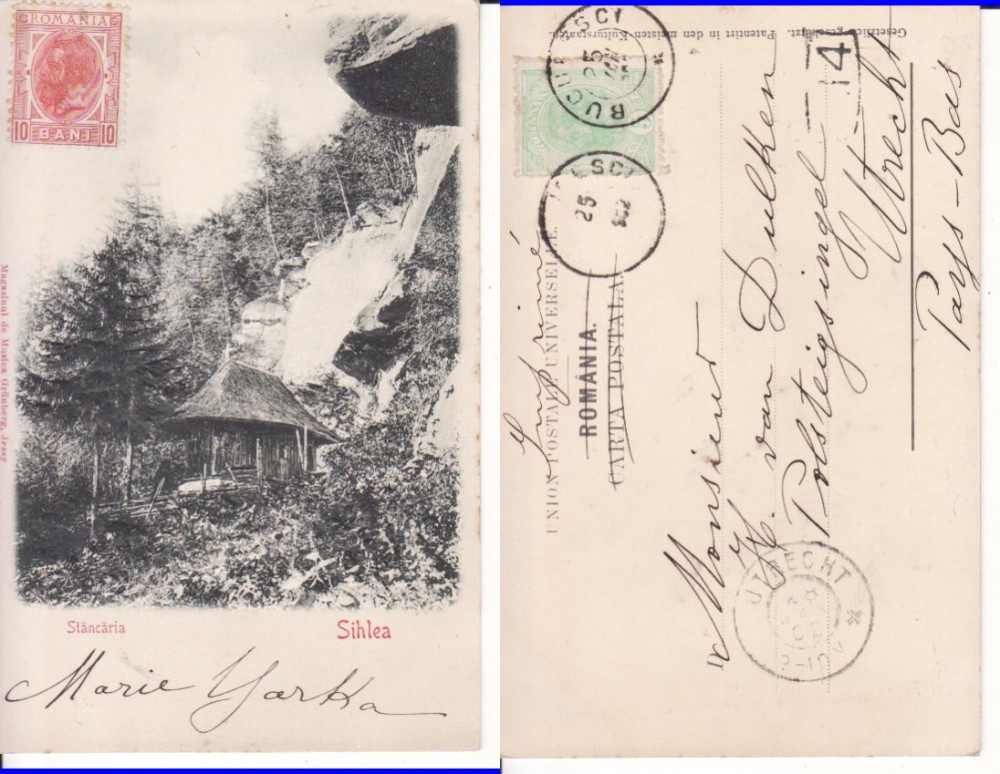 ROMANIA
10 BANI 10
Magasinul de Musica Grünberg, Jassy
Stăncăria
Sihlea
Marie Yarka
Gesetzlich geschützt. Patentirt in den meisten Kulturstaaten.
14
BUCURESCI
25
ESCI
25
902
Imprimé
UNION POSTALE UNIVERSELLE.
ROMÂNIA.
CARTA POSTALA
Monsieur
H. van Dulken
Polsteigsingel
Utrecht
Pays-Bas
UTRECHT